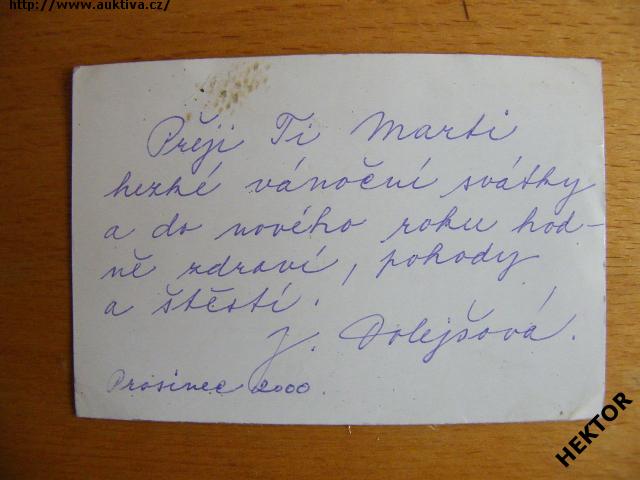 http://www.auktiva.cz/
Přeji Ti Marti
hezké vánoční svátky
a do nového roku hod-
ně zdraví, pohody
a štěstí.
J. Dolejšová.
Prosinec 2000.
HEKTOR